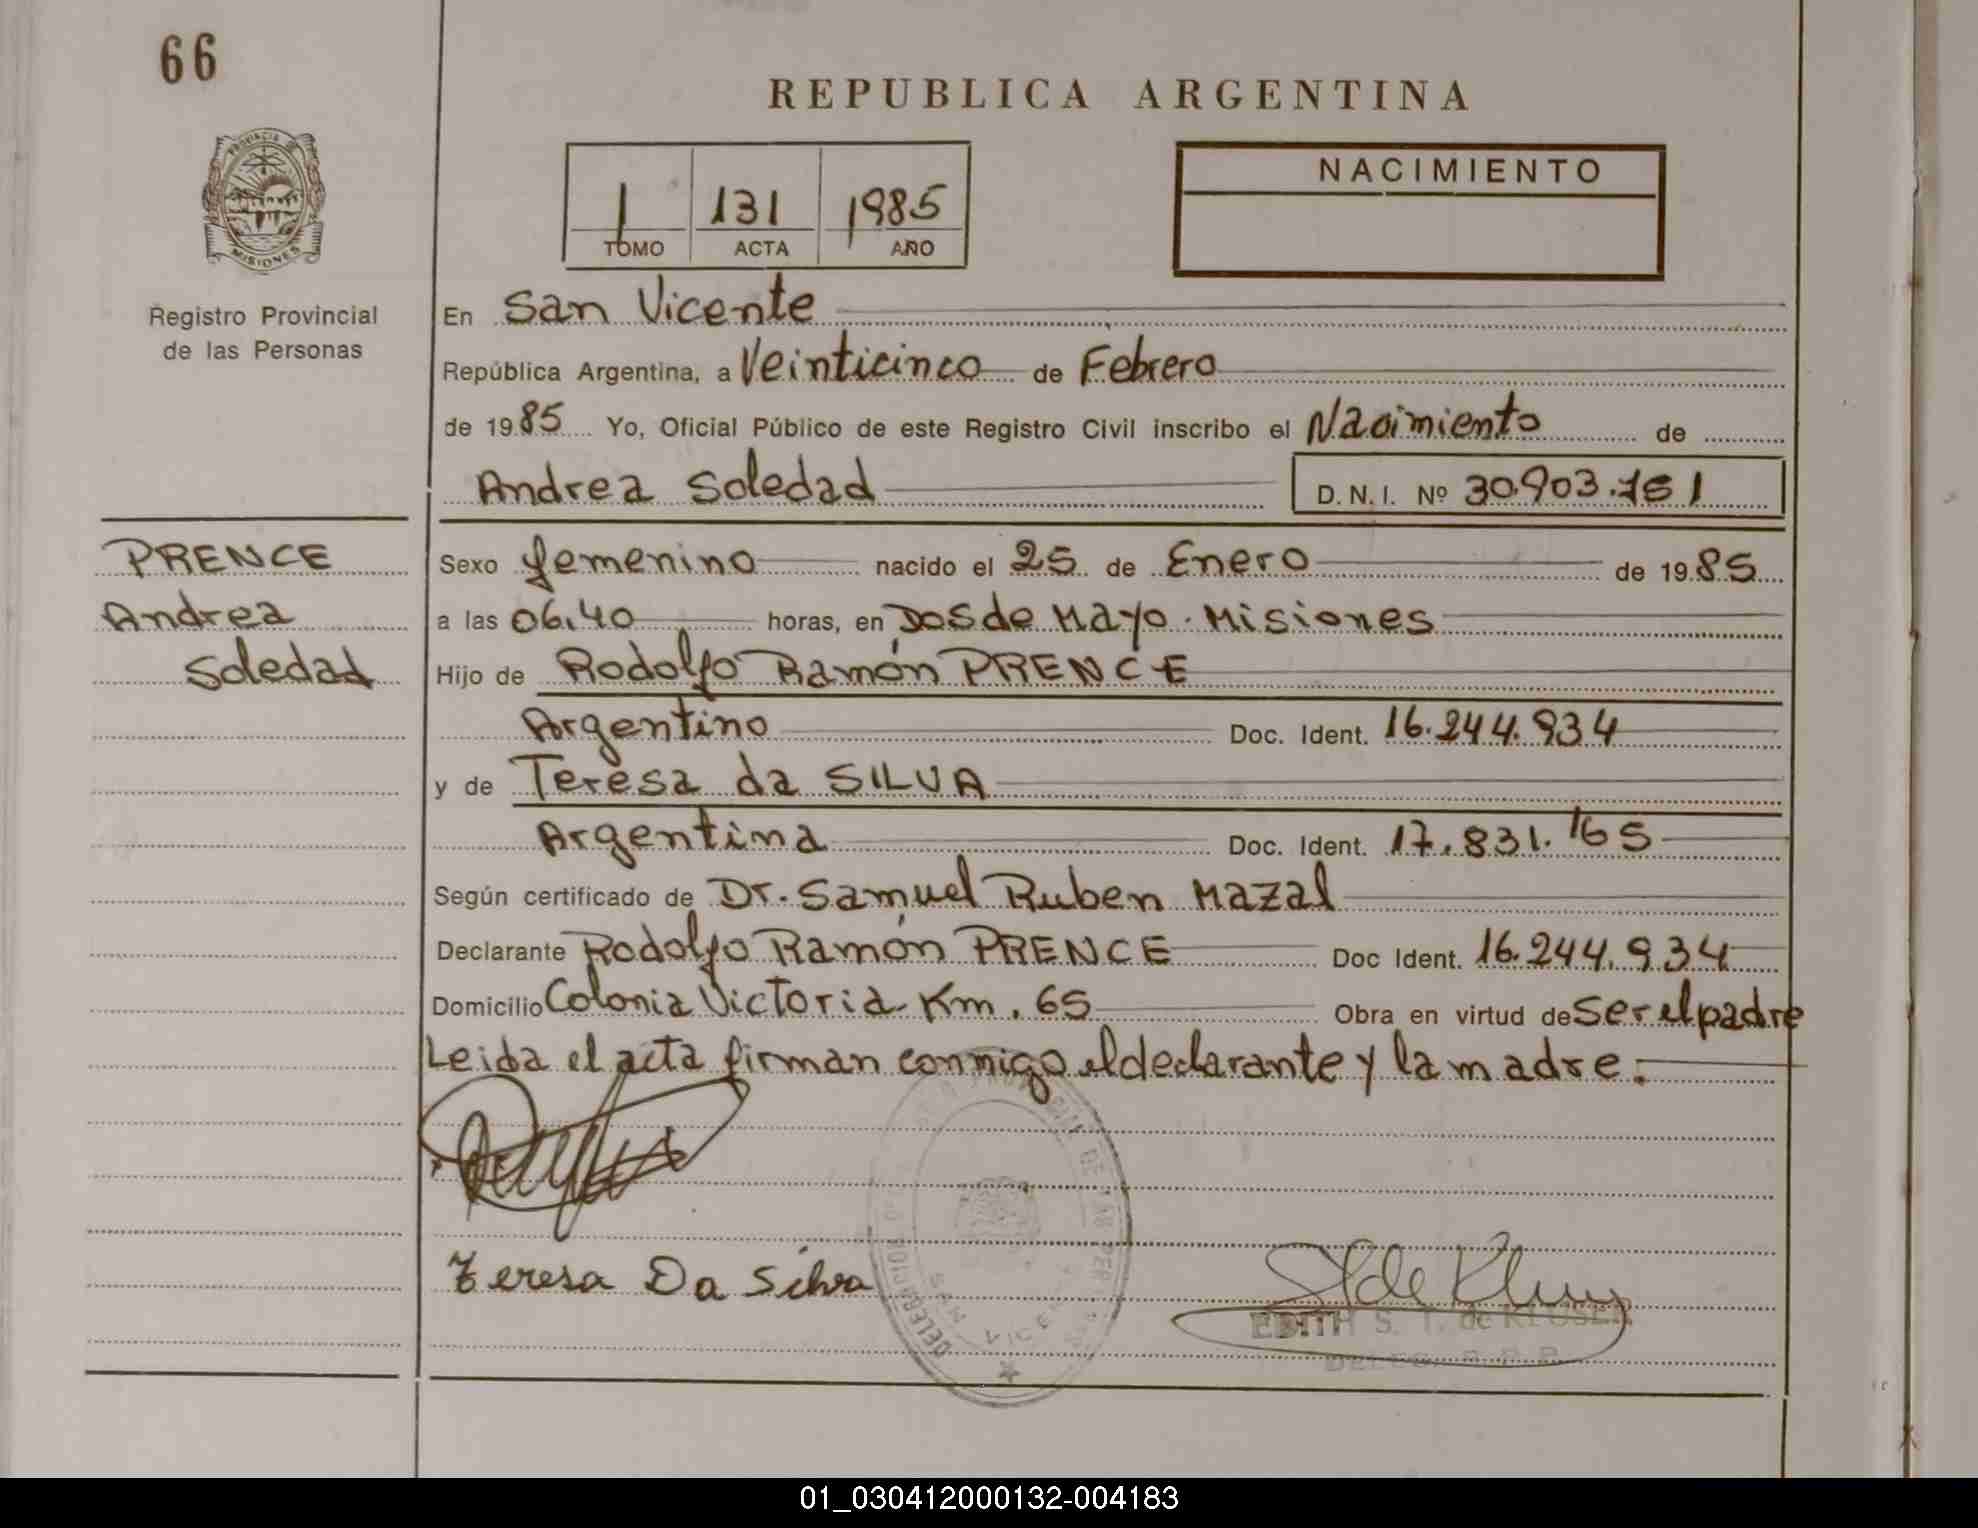 66
REPUBLICA ARGENTINA
PROVINCIA DE
MISIONES
1 131 1985
TOMO ACTA AÑO
NACIMIENTO
Registro Provincial
de las Personas
En San Vicente
República Argentina, a Veinticinco de Febrero
de 1985 Yo, Oficial Público de este Registro Civil inscribo el Nacimiento de
Andrea Soledad D.N.I. Nº 30.903.151
PRENCE
Andrea
Soledad
Sexo femenino nacido el 25 de Enero de 1985
a las 06,40 horas, en Dos de Mayo. Misiones
Hijo de Rodolfo Ramón PRENCE
Argentino Doc. Ident. 16.244.934
y de Teresa da SILVA
Argentina Doc. Ident. 17.831.165
Según certificado de Dr. Samuel Ruben Mazal
Declarante Rodolfo Ramón PRENCE Doc Ident. 16.244.934
Domicilio Colonia Victoria Km. 65 Obra en virtud de ser el padre
Leida el acta firman conmigo el declarante y la madre.
Teresa Da Silva
EDITH S. T. de KLUSER
DELEG. R. P. P.
SAN VICENTE
01_030412000132-004183